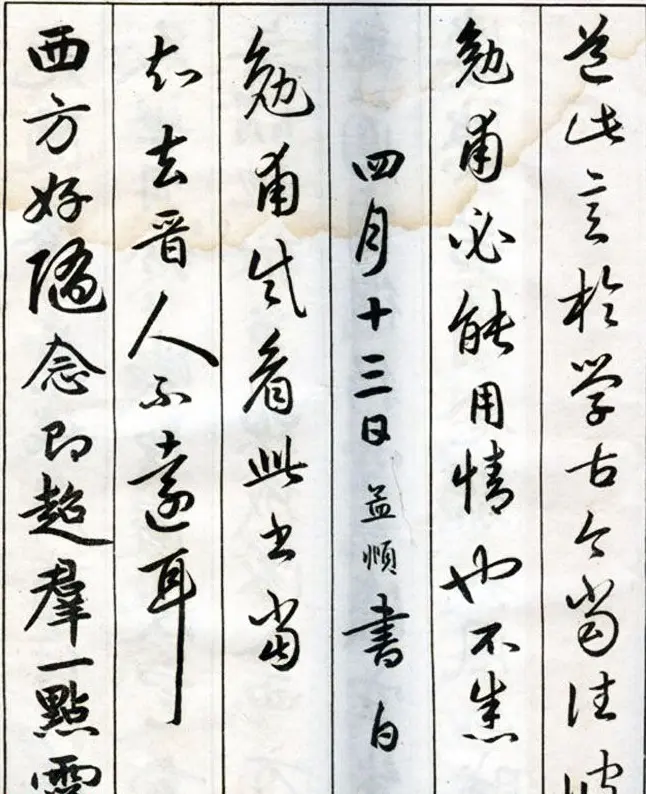 此言於学古當佳
勉甫必能用情也不悉
四月十三日益順書白
勉甫試看此書當
知去晉人不遠耳
西方好隨念即超羣一點靈